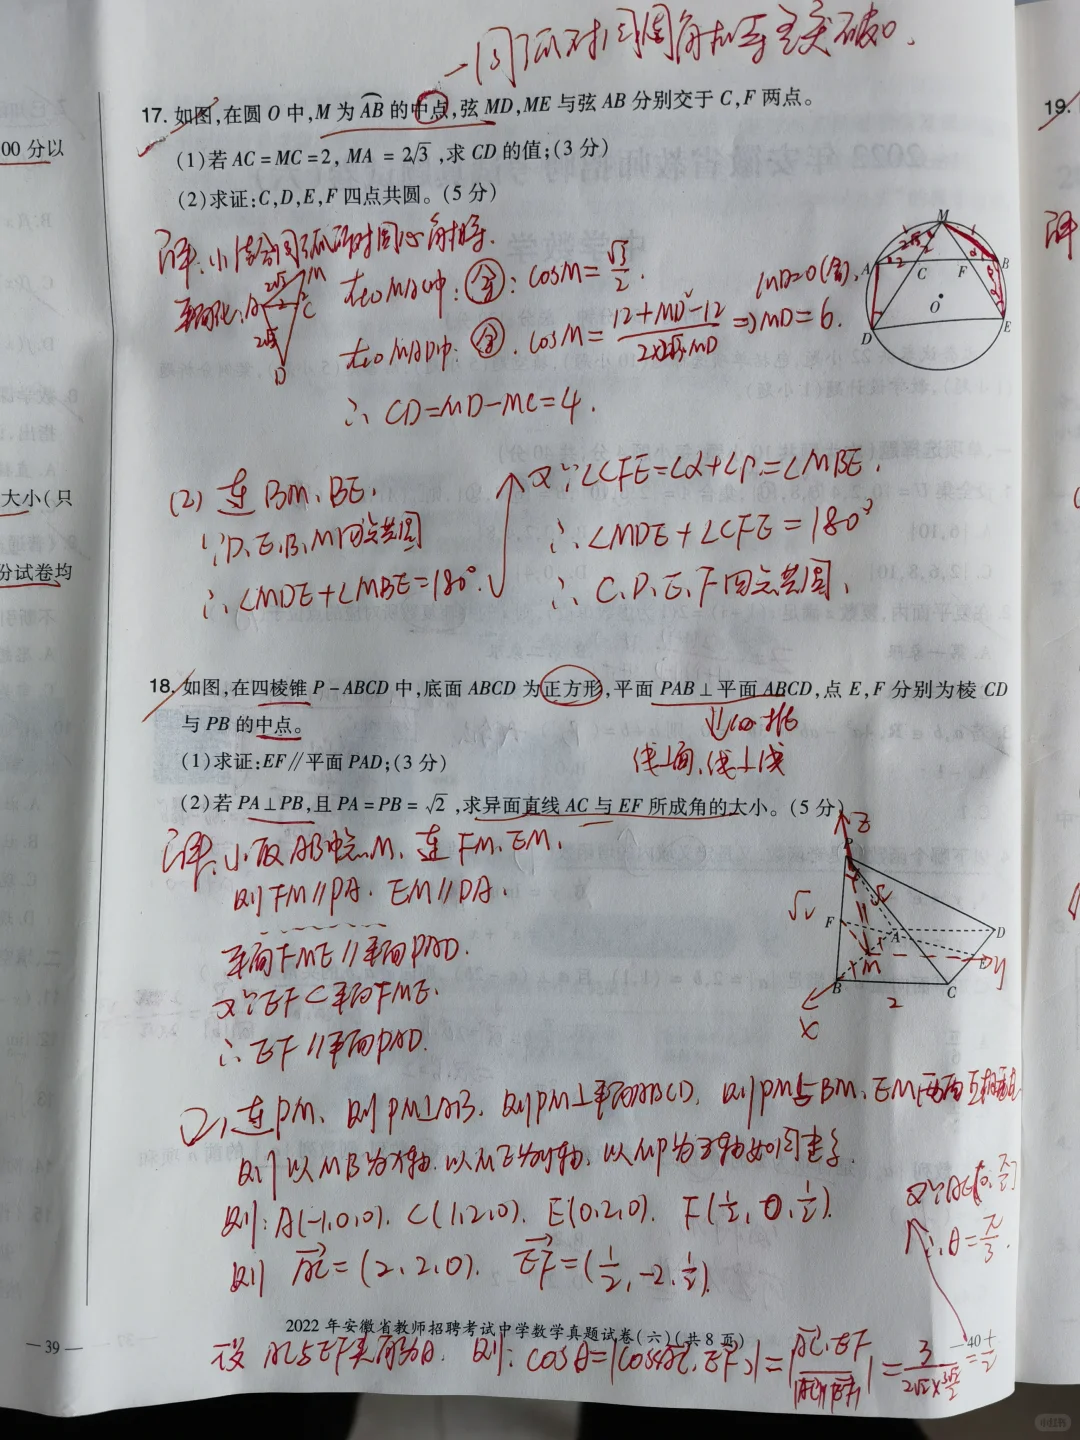 一同弧对同圆周角相等是突破口.
17. 如图,在圆 O 中,M 为 AB 的中点,弦 MD,ME 与弦 AB 分别交于 C,F 两点。
(1)若 AC = MC = 2, MA = 2√3 ,求 CD 的值;(3 分)
(2)求证:C,D,E,F 四点共圆。(5 分)
在△MAC中: 余: cosM = √3/2.
在△MAD中: 余. cosM = (12+MD²-12)/(2×2√3·MD) ⇒ MD = 6. MD=0(舍).
∴ CD = MD-MC = 4.
(2) 连 BM、BE.
∵ D、E、B、M四点共圆
∴ ∠MDE+∠MBE=180°.
又∵ ∠CFE=∠α+∠β=∠MBE.
∴ ∠MDE+∠CFE = 180°
∴ C、D、E、F四点共圆.
M
A
B
C
F
O
D
E
18. 如图,在四棱锥 P - ABCD 中,底面 ABCD 为正方形,平面 PAB⊥平面 ABCD,点 E,F 分别为棱 CD
与 PB 的中点。
线⊥面、线⊥线
(1)求证:EF∥平面 PAD;(3 分)
(2)若 PA⊥PB,且 PA = PB = √2 ,求异面直线 AC 与 EF 所成角的大小。(5 分)
解:(1)取AB中点M、连 FM、EM.
则 FM∥PA. EM∥DA.
平面FME∥平面PAD.
又∵ EF⊂平面FME.
∴ EF∥平面PAD.
z
P
√2
√2
F
A
D
M
E
y
B
2
C
x
(2)连PM、则PM⊥AB、则PM⊥平面ABCD, 则PM与BM、EM两两互相垂直
则以MB为x轴、以ME为y轴、以MP为z轴如图建系
则: A(-1,0,0). C(1,2,0). E(0,2,0). F(1/2, 0, 1/2).
则 AC = (2,2,0). EF = (1/2, -2, 1/2).
又∵ θ∈[0, π/2]
∴ θ = π/3.
2022 年安徽省教师招聘考试中学数学真题试卷(六)(共 8 页)
— 39 —
— 40 —
设AC与EF夹角为θ. 则: cosθ = |cos<AC, EF>| = |AC·EF/|AC||EF|| = 3/(2√2×3√2/2) = 1/2
00 分以
大小(只
分试卷均
19.